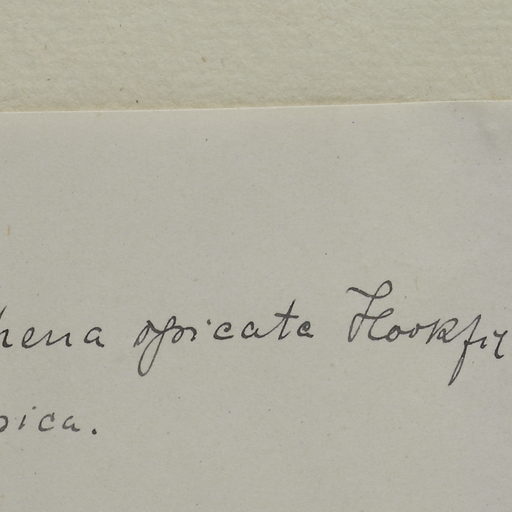 hena spicata Hookfil
pica.